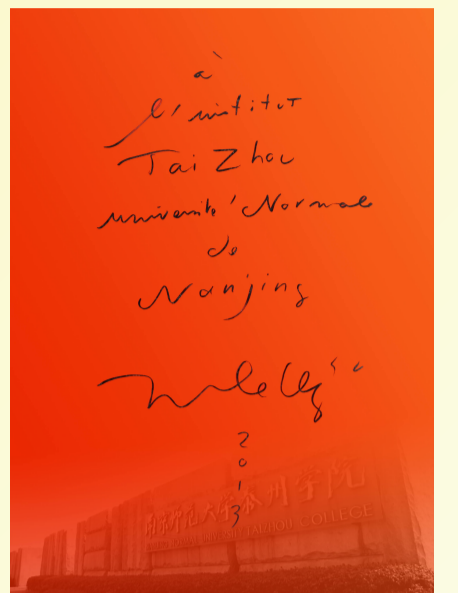 à
l'institut
Tai Zhou
université Normale
de
Nanjing
2
0
1
3
南京师范大学泰州学院
NANJING NORMAL UNIVERSITY TAIZHOU COLLEGE